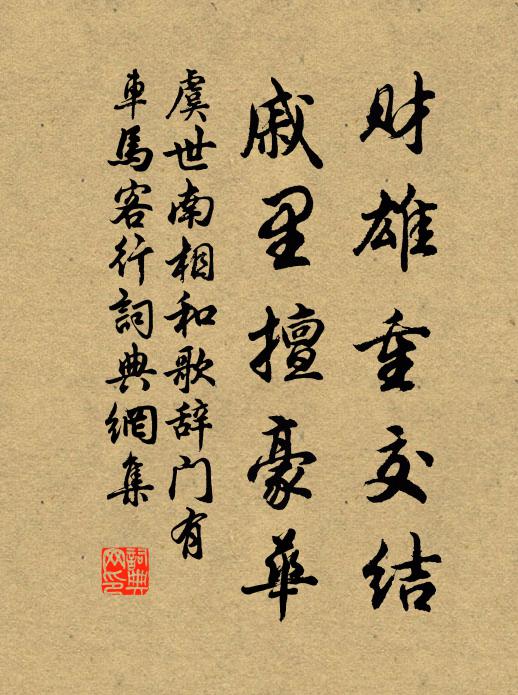 财雄重交结
戚里擅豪華
虞世南相和歌辞门有
車馬客行詞典網集
詞典
网印